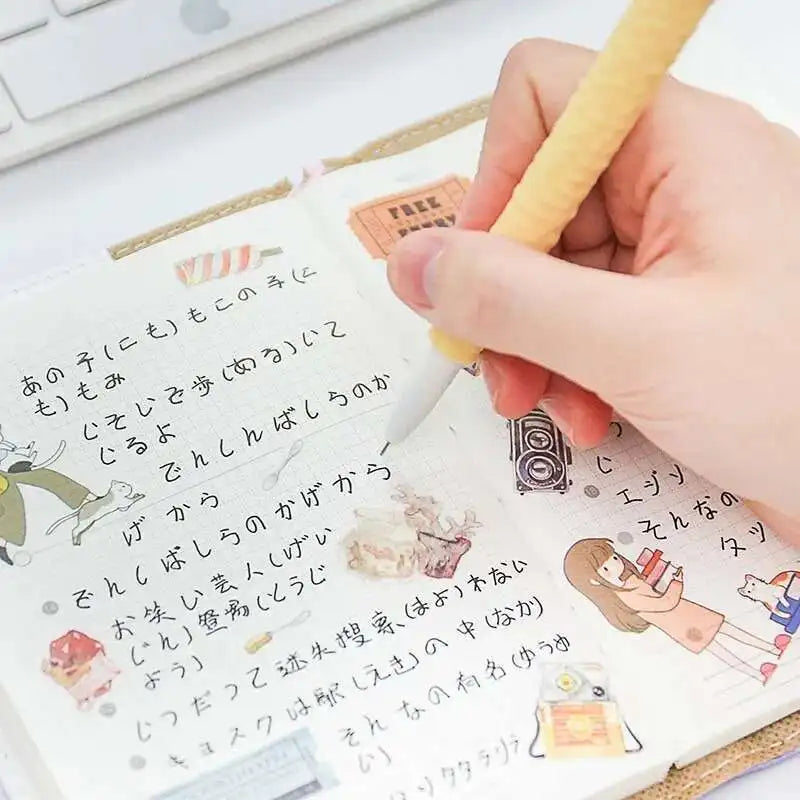 あの子(にも)もこの子(に
も)もみ
じそじを歩(ある)いて
じるよ
でんしんばしらのか
げから
でんしばしらのかげから
お笑い芸人(げい
じん)登場(とうじ
よう)
じつだって迷失搜索(まよ)わない
キョスクは駅(えき)の中(なか)
そんなの有名(ゆうめ
い)
FREE
じ
エジソ
そんなの
タッ